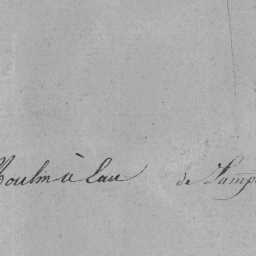 Moulin à Eau de Lamp